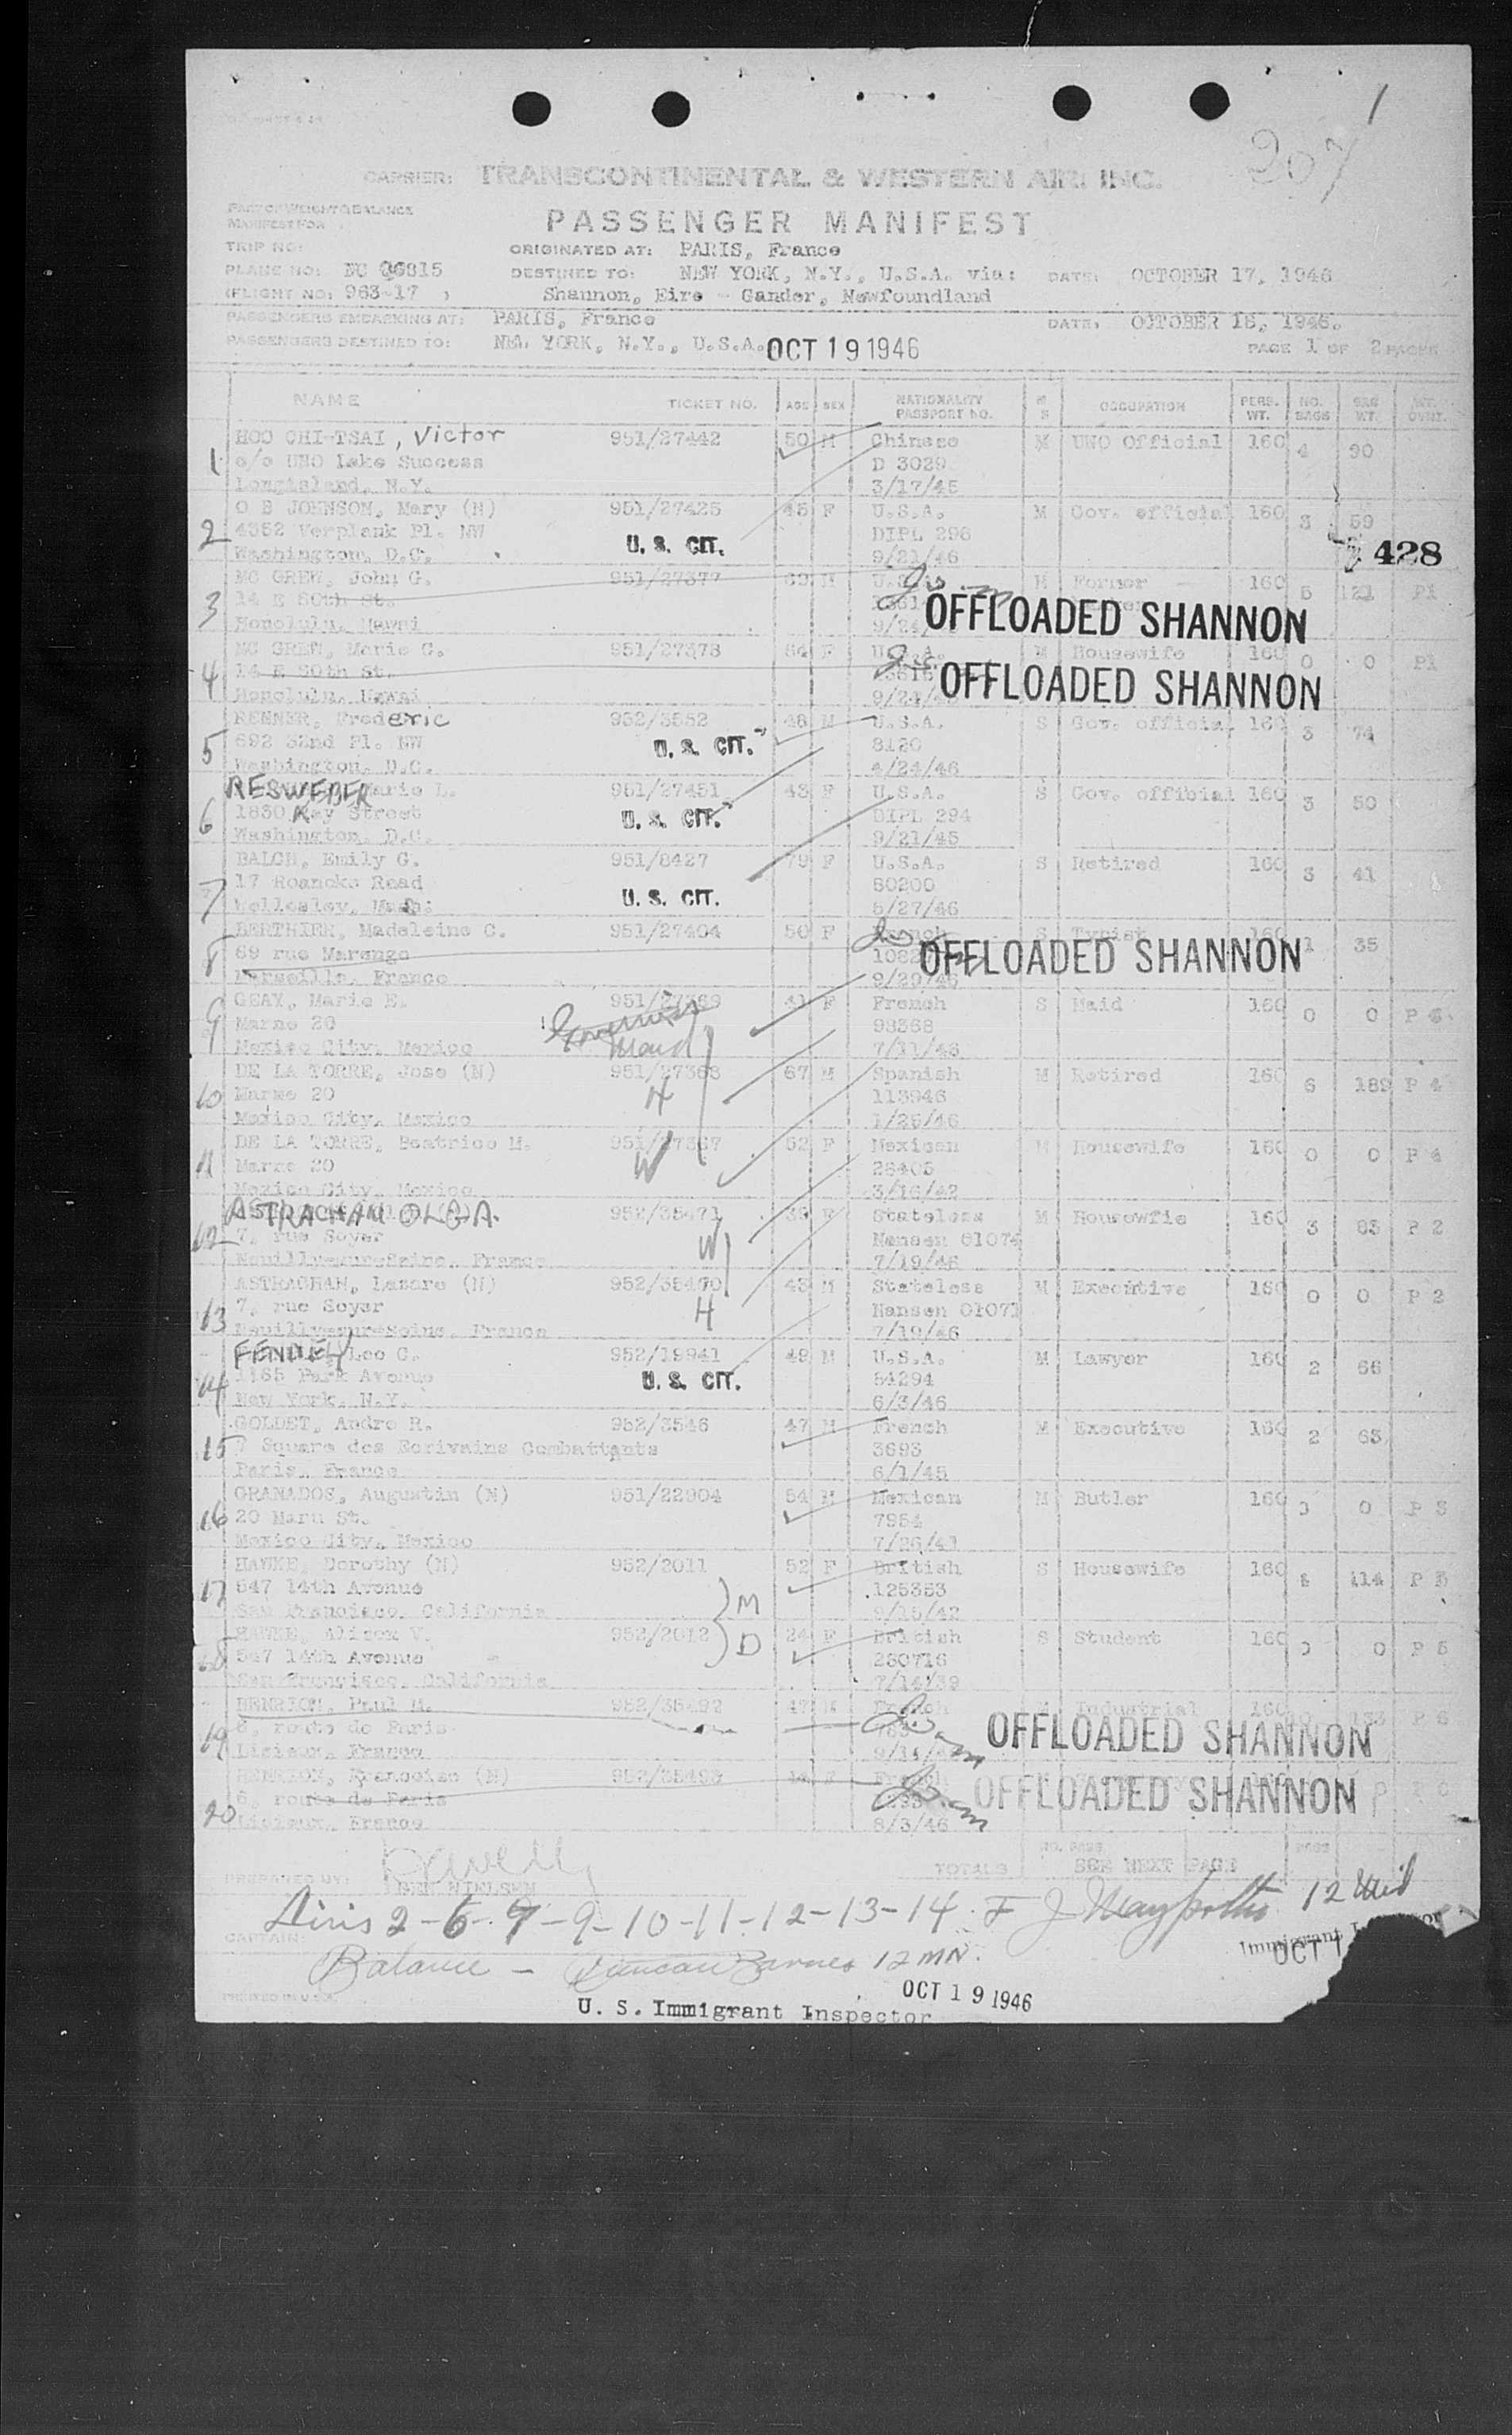 1
207
CARRIER: TRANSCONTINENTAL & WESTERN AIR. INC.
PASSENGER MANIFEST
TRIP NO:
ORIGINATED AT: PARIS, France
PLANE NO: NC 86815 DESTINED TO: NEW YORK, N.Y., U.S.A. via: DATE: OCTOBER 17, 1946
(FLIGHT NO: 963-17 ) Shannon, Eire - Gander, Newfoundland
PASSENGERS EMBARKING AT: PARIS, France DATE: OCTOBER 18, 1946.
PASSENGERS DESTINED TO: NEW YORK, N.Y., U.S.A. OCT 19 1946 PAGE 1 OF 2 PAGES
NAME TICKET NO. AGE SEX NATIONALITY PASSPORT NO. M S OCCUPATION PERS. WT. NO. BAGS BAG WT.
HOO CHI-TSAI, Victor 951/27442 50 M Chinese M UNO Official 160 4 90
1 c/o UNO Lake Success D 3029
Longisland, N.Y. 3/17/45
O B JOHNSON, Mary (N) 951/27425 45 F U.S.A. M Gov. official 160 3 59
2 4352 Verplank Pl. NW U. S. CIT. DIPL 296
Washington, D.C. 9/21/46
428
MC GREW, John G. 951/27377 M Former 160 5 121 P1
3 14 E 80th St. OFFLOADED SHANNON
Honolulu, Hawai
MC GREW, Marie G. 951/27378 64 F M Housewife 160 0 0 P1
4 14 E 80th St. OFFLOADED SHANNON
Honolulu, Hawai
RENNER, Frederic 952/3552 48 M U.S.A. S Gov. official 160 3 74
5 692 32nd Pl. NW U. S. CIT. 8120
Washington, D.C. 4/24/46
RESWEBER Marie L. 951/27451 43 F U.S.A. S Gov. official 160 3 50
6 1830 Kay Street U. S. CIT. DIPL 294
Washington, D.C. 9/21/45
BALCH, Emily G. 951/8427 79 F U.S.A. S Retired 160 3 41
7 17 Roanoke Road U. S. CIT. 80200
Wellesley, Mass. 5/27/46
BERTHIER, Madeleine C. 951/27404 50 F French S Typist 160 1 35
8 69 rue Marengo OFFLOADED SHANNON
Marseille, France
GEAY, Marie E. 951/27369 41 F French S Maid 160 0 0 P 4
9 Marne 20 Governess Maid 98368
Mexico City, Mexico 7/11/46
DE LA TORRE, Jose (N) 951/27368 67 M Spanish M Retired 160 6 189 P 4
10 Marne 20 H 113946
Mexico City, Mexico 1/25/46
DE LA TORRE, Beatrice M. 951/27367 52 F Mexican M Housewife 160 0 0 P 4
11 Marne 20 W 28405
Mexico City, Mexico 3/16/42
ASTRACHAN OLGA. 952/35471 39 F Stateless M Housewfie 160 3 83 P 2
12 7, rue Soyer W Nansen 01074
Neuilly-sur-Seine, France 7/19/46
ASTRACHAN, Lazare (N) 952/35470 43 M Stateless M Executive 160 0 0 P 2
13 7, rue Soyer H Nansen 01071
Neuilly-sur-Seine, France 7/19/46
FENDLEY Leo C. 952/19941 49 M U.S.A. M Lawyer 160 2 66
14 1165 Park Avenue U. S. CIT. 54294
New York, N.Y. 6/3/46
GOLDET, Andre R. 952/3546 47 M French M Executive 160 2 63
15 7 Square des Ecrivains Combattants 3693
Paris, France 6/1/45
GRANADOS, Augustin (N) 951/22904 54 M Mexican M Butler 160 0
16 20 Marn St. 7954
Mexico City, Mexico 7/26/43
HAWKE, Dorothy (N) 952/2011 52 F British S Housewife 160 114 P 5
17 547 14th Avenue M 125353
San Francisco, California 9/15/42
HAWKE, Alison V. 952/2012 24 F British S Student 160 0 P 5
18 547 14th Avenue D 260716
San Francisco, California 7/14/39
HENRION, Paul M. 952/35492 47 M French Industrial 160 P 6
19 6, route de Paris OFFLOADED SHANNON
Lisieux, France
HENRION, Francoise (N) 952/35493 French
20 6, route de Paris OFFLOADED SHANNON
Lisieux, France 8/3/46
TOTALS SEE NEXT PAGE
PREPARED BY: NIELSEN
2-6-7-9-10-11-12-13-14 12 Mid
CAPTAIN: Immigrant
OCT 1
Balance - Duncan Barnes 12 MN.
OCT 19 1946
PRINTED IN U.S.A. U. S. Immigrant Inspector